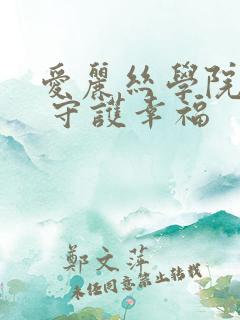 愛麗絲學院
守護幸福
鄭文萍
未经同意禁止转载